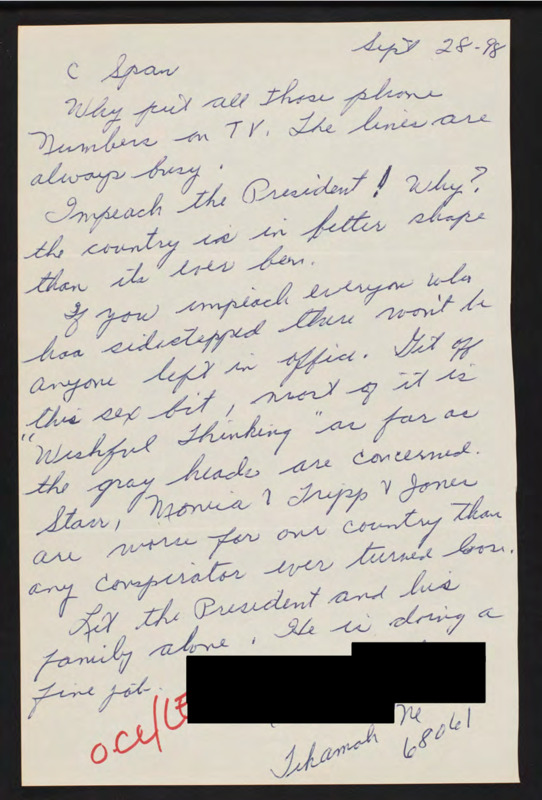 Sept 28-98
C Span
Why put all those phone
Numbers on TV. The lines are
always busy.
Impeach the President! Why?
the country is in better shape
than its ever ben.
If you impeach everyone who
has sidestepped there won't be
anyone left in office. Git off
this sex bit, most of it is
"Wishful Thinking" as far as
the gray heads are concerned.
Starr, Monica & Tripp & Jones
are worse for our country than
any conspirator ever turned loose.
Let the President and his
family alone. He is doing a
fine job.
Tekamah Ne
68061